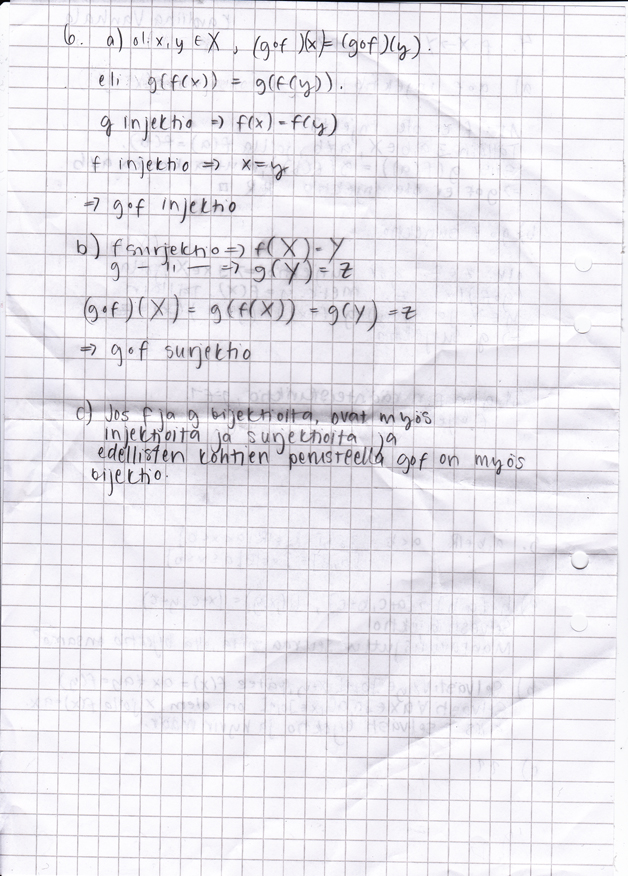 6. a) ol. x,y ∈ X, (g∘f)(x) = (g∘f)(y).
eli g(f(x)) = g(f(y)).
g injektio => f(x) = f(y)
f injektio => x = y
=> g∘f injektio
b) f surjektio => f(X) = Y
g — " — => g(Y) = Z
(g∘f)(X) = g(f(X)) = g(Y) = Z
=> g∘f surjektio
c) Jos f ja g bijektioita, ovat myös
injektioita ja surjektioita ja
edellisten kohtien perusteella g∘f on myös
bijektio.